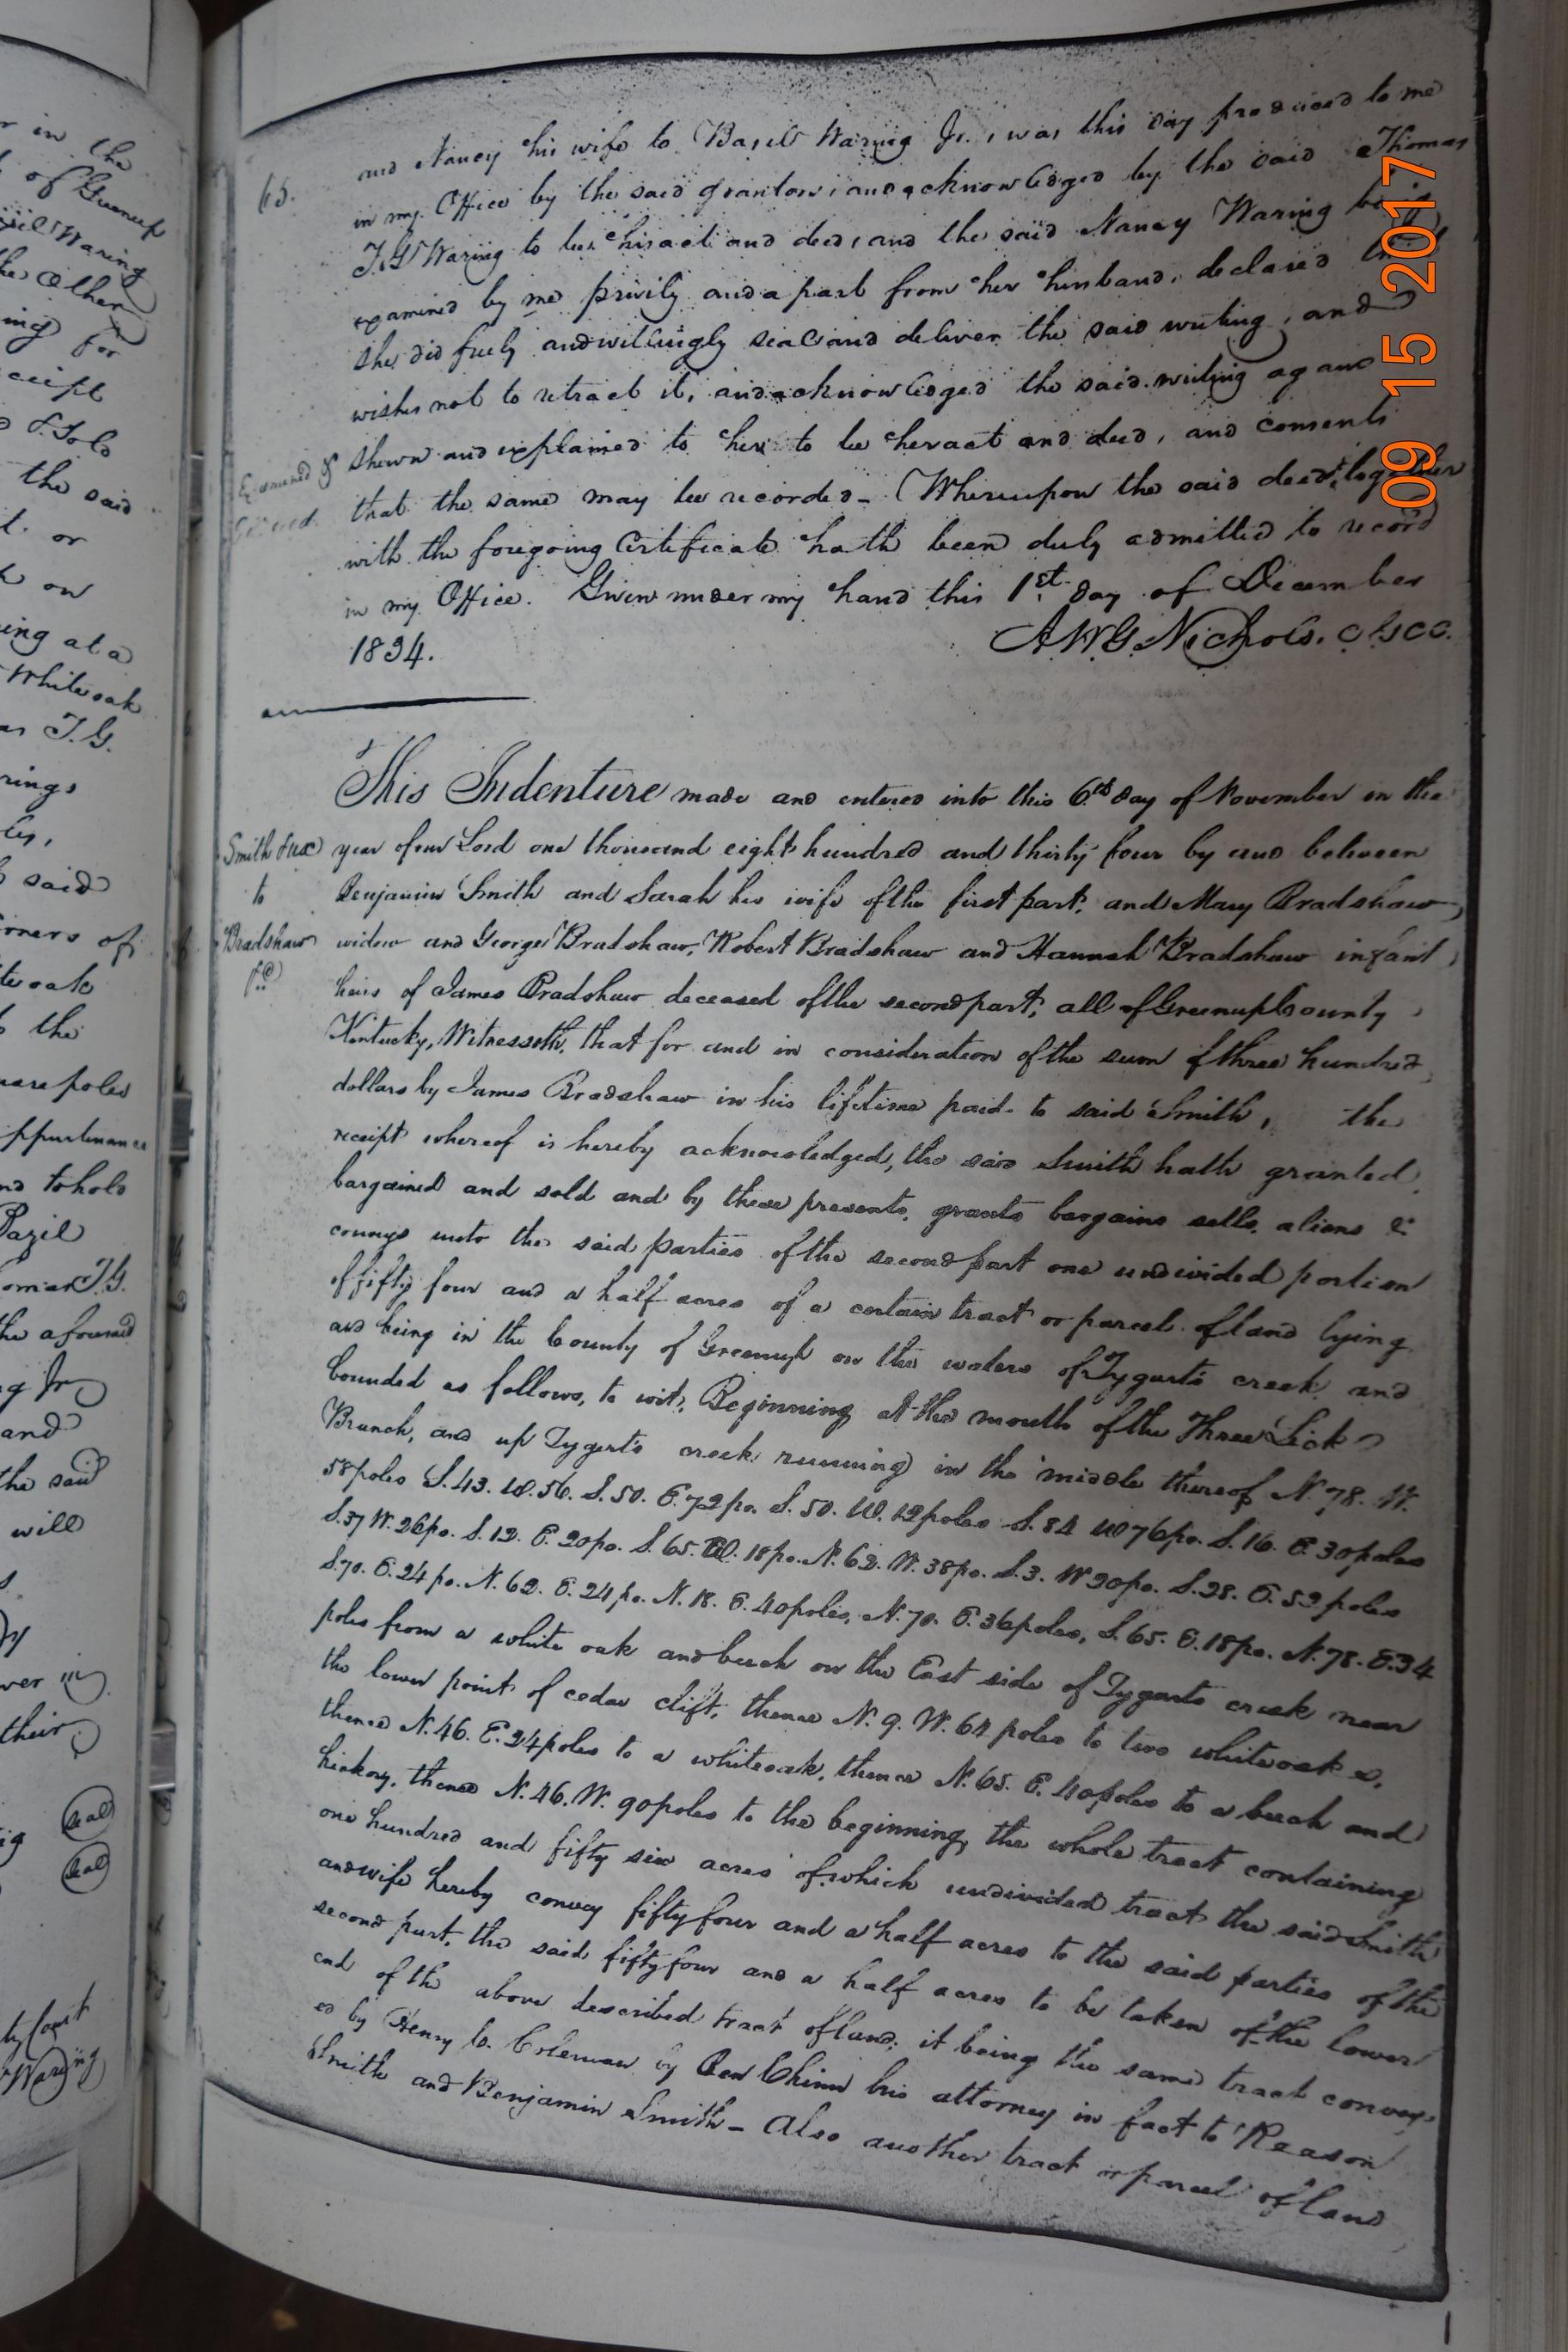 r in the
of Greenup
sil Waring
the Other
ing for
ceipt
& Sold
the said
t. or
k on
ing at a
White oak
as T.G.
rings
ley,
said
orners of
te oak
to the
uare poles
ppurtenance
nd to hold
Bazil
omas T.G.
the aforesaid
g Jr
and
the said
will
ver in
their
Seal
Seal
ty Court
Waring
65.
and Nancy his wife to Basil Waring Jr., was this day produced to me
in my Office by the said grantors, and acknowledged by the said Thomas
T.G Waring to be his act and deed, and the said Nancy Waring being
examined by me privily and apart from her husband, declared that
she did freely and willingly seal and deliver the said writing, and
wishes not to retract it, and acknowledged the said writing again
Examined &
shewn and explained to her to be her act and deed, and consents
that the same may be recorded - Whereupon the said deed, together
with the foregoing Certificate hath been duly admitted to record
in my Office. Given under my hand this 1st day of December
1834.
A.W.G. Nichols. C G C C.
This Indenture made and entered into this 6th day of November in the
Smith & ux
to
Bradshaw
year of our Lord one thousand eight hundred and thirty four by and between
Benjamin Smith and Sarah his wife of the first part, and Mary Bradshaw
widow and George Bradshaw, Robert Bradshaw and Hannah Bradshaw infant
heirs of James Bradshaw deceased of the second part, all of Greenup County
Kentucky, Witnesseth, that for and in consideration of the sum of three hundred
dollars by James Bradshaw in his lifetime paid to said Smith, the
receipt whereof is hereby acknowledged, the said Smith hath granted
bargained and sold and by these presents, grants bargains sells, aliens &
conveys unto the said parties of the second part one undivided portion
of fifty four and a half acres of a certain tract or parcel of land lying
and being in the County of Greenup on the waters of Tygarts creek and
bounded as follows, to wit, Beginning at the mouth of the Three Lick
Branch, and up Tygerts creek running in the middle thereof N. 78. W.
58 poles S. 43. W. 56. S. 50. E. 72 po. S. 50. W. 12 poles S. 84 W 76 po. S. 16. E. 30 poles
S. 37 W. 26 po. S. 12. E. 20 po. S. 65. W. 18 po. N. 62. W. 38 po. S. 3. W 20 po. S. 28. E. 52 poles
S. 70. E. 24 po. N. 62. E. 24 po. N. 18. E. 40 poles, N. 70. E. 36 poles, S. 65. E. 18 po. N. 78. E. 34
poles from a white oak and beech on the East side of Tygarts creek near
the lower point of cedar clift, thence N. 9. W. 64 poles to two white oaks,
thence N. 46. E. 24 poles to a white oak, thence N. 65. E. 40 poles to a beech and
hickory, thence N. 46. W. 90 poles to the beginning, the whole tract containing
one hundred and fifty six acres of which undivided tract the said Smith
and wife hereby convey fifty four and a half acres to the said parties of the
second part, the said fifty four and a half acres to be taken of the lower
end of the above described tract of land; it being the same tract convey-
ed by Henry C. Coleman by Ben Chinn his attorney in fact to Reason
Smith and Benjamin Smith - Also another tract or parcel of land
09 15 2017